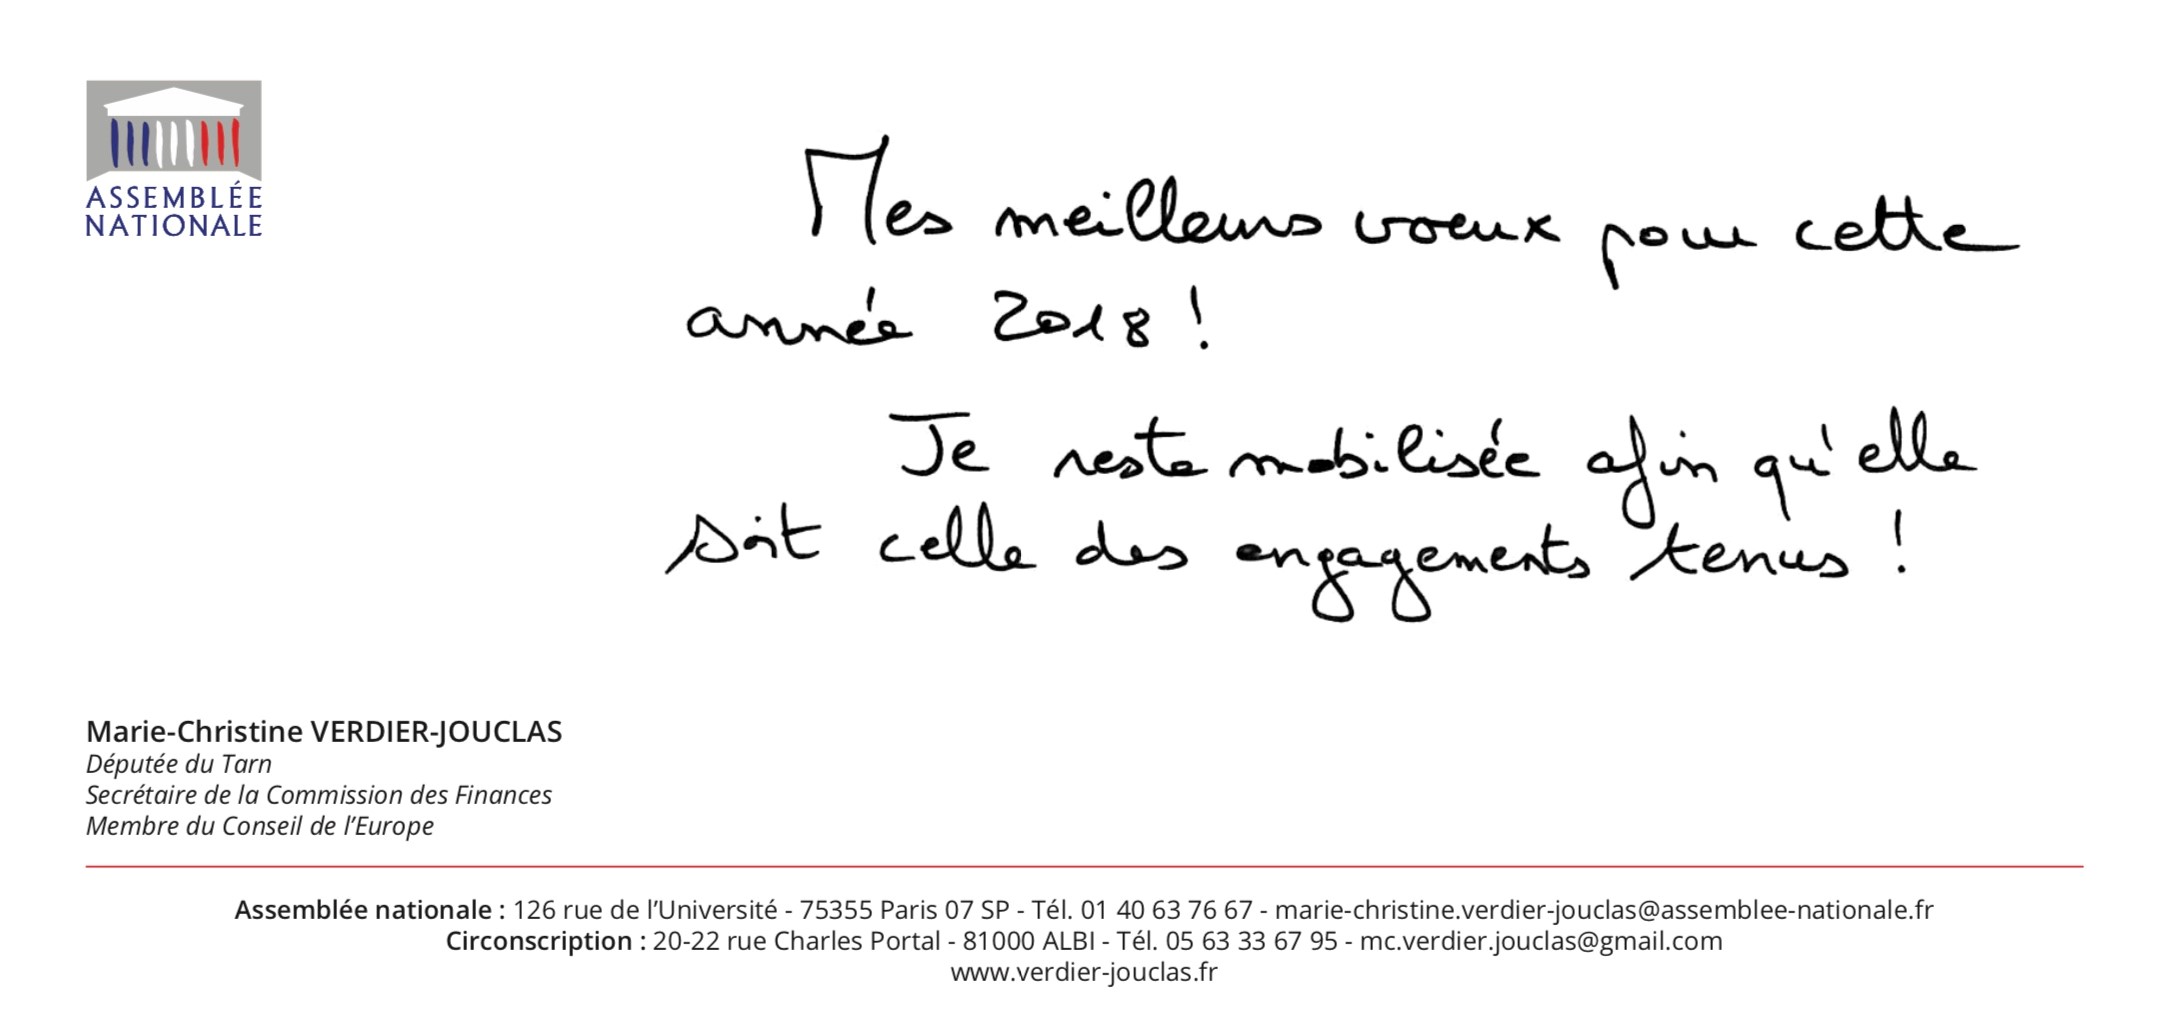 ASSEMBLÉE
NATIONALE
Mes meilleurs voeux pour cette
année 2018 !
Je reste mobilisée afin qu'elle
soit celle des engagements tenus !
Marie-Christine VERDIER-JOUCLAS
Députée du Tarn
Secrétaire de la Commission des Finances
Membre du Conseil de l’Europe
Assemblée nationale : 126 rue de l’Université - 75355 Paris 07 SP - Tél. 01 40 63 76 67 - marie-christine.verdier-jouclas@assemblee-nationale.fr
Circonscription : 20-22 rue Charles Portal - 81000 ALBI - Tél. 05 63 33 67 95 - mc.verdier.jouclas@gmail.com
www.verdier-jouclas.fr